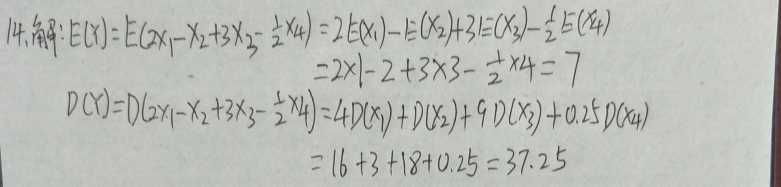 14.解:E(Y)=E(2X₁-X₂+3X₃-½X₄)=2E(X₁)-E(X₂)+3E(X₃)-½E(X₄)
=2×1-2+3×3-½×4=7
D(Y)=D(2X₁-X₂+3X₃-½X₄)=4D(X₁)+D(X₂)+9D(X₃)+0.25D(X₄)
=16+3+18+0.25=37.25